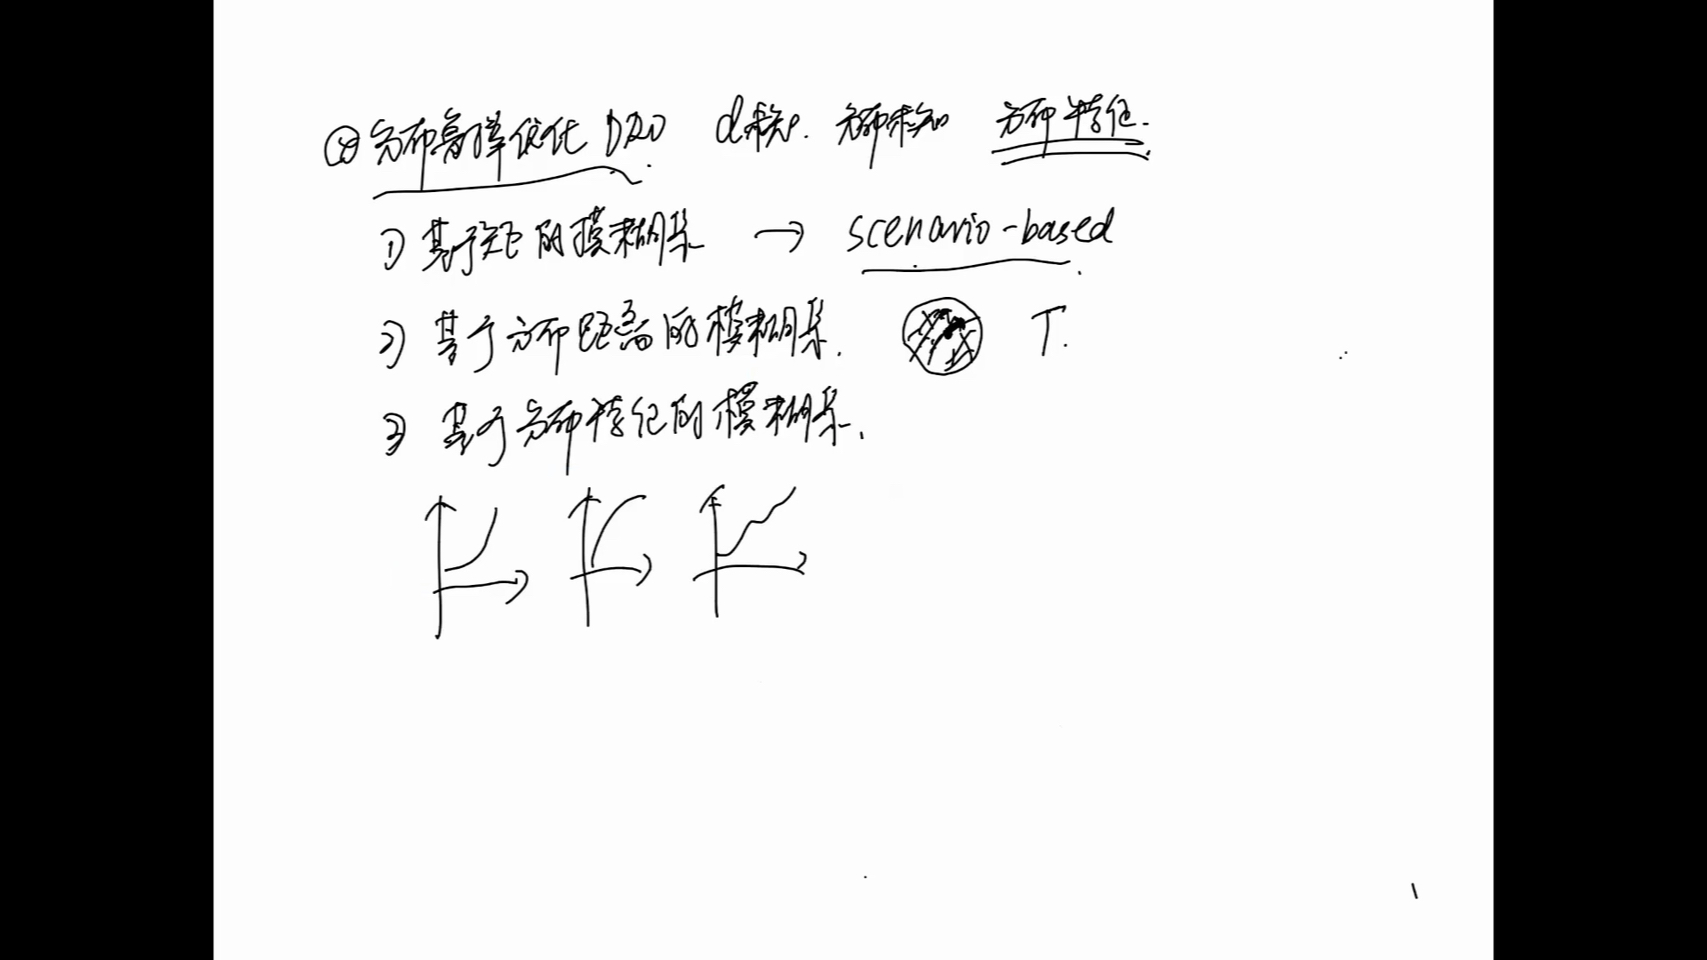 分布鲁棒优化 DRO d未知. 分布未知 分布特征.
1) 基于矩的模糊集 → scenario-based
2) 基于分布距离的模糊集. T.
3) 基于分布特征的模糊集.